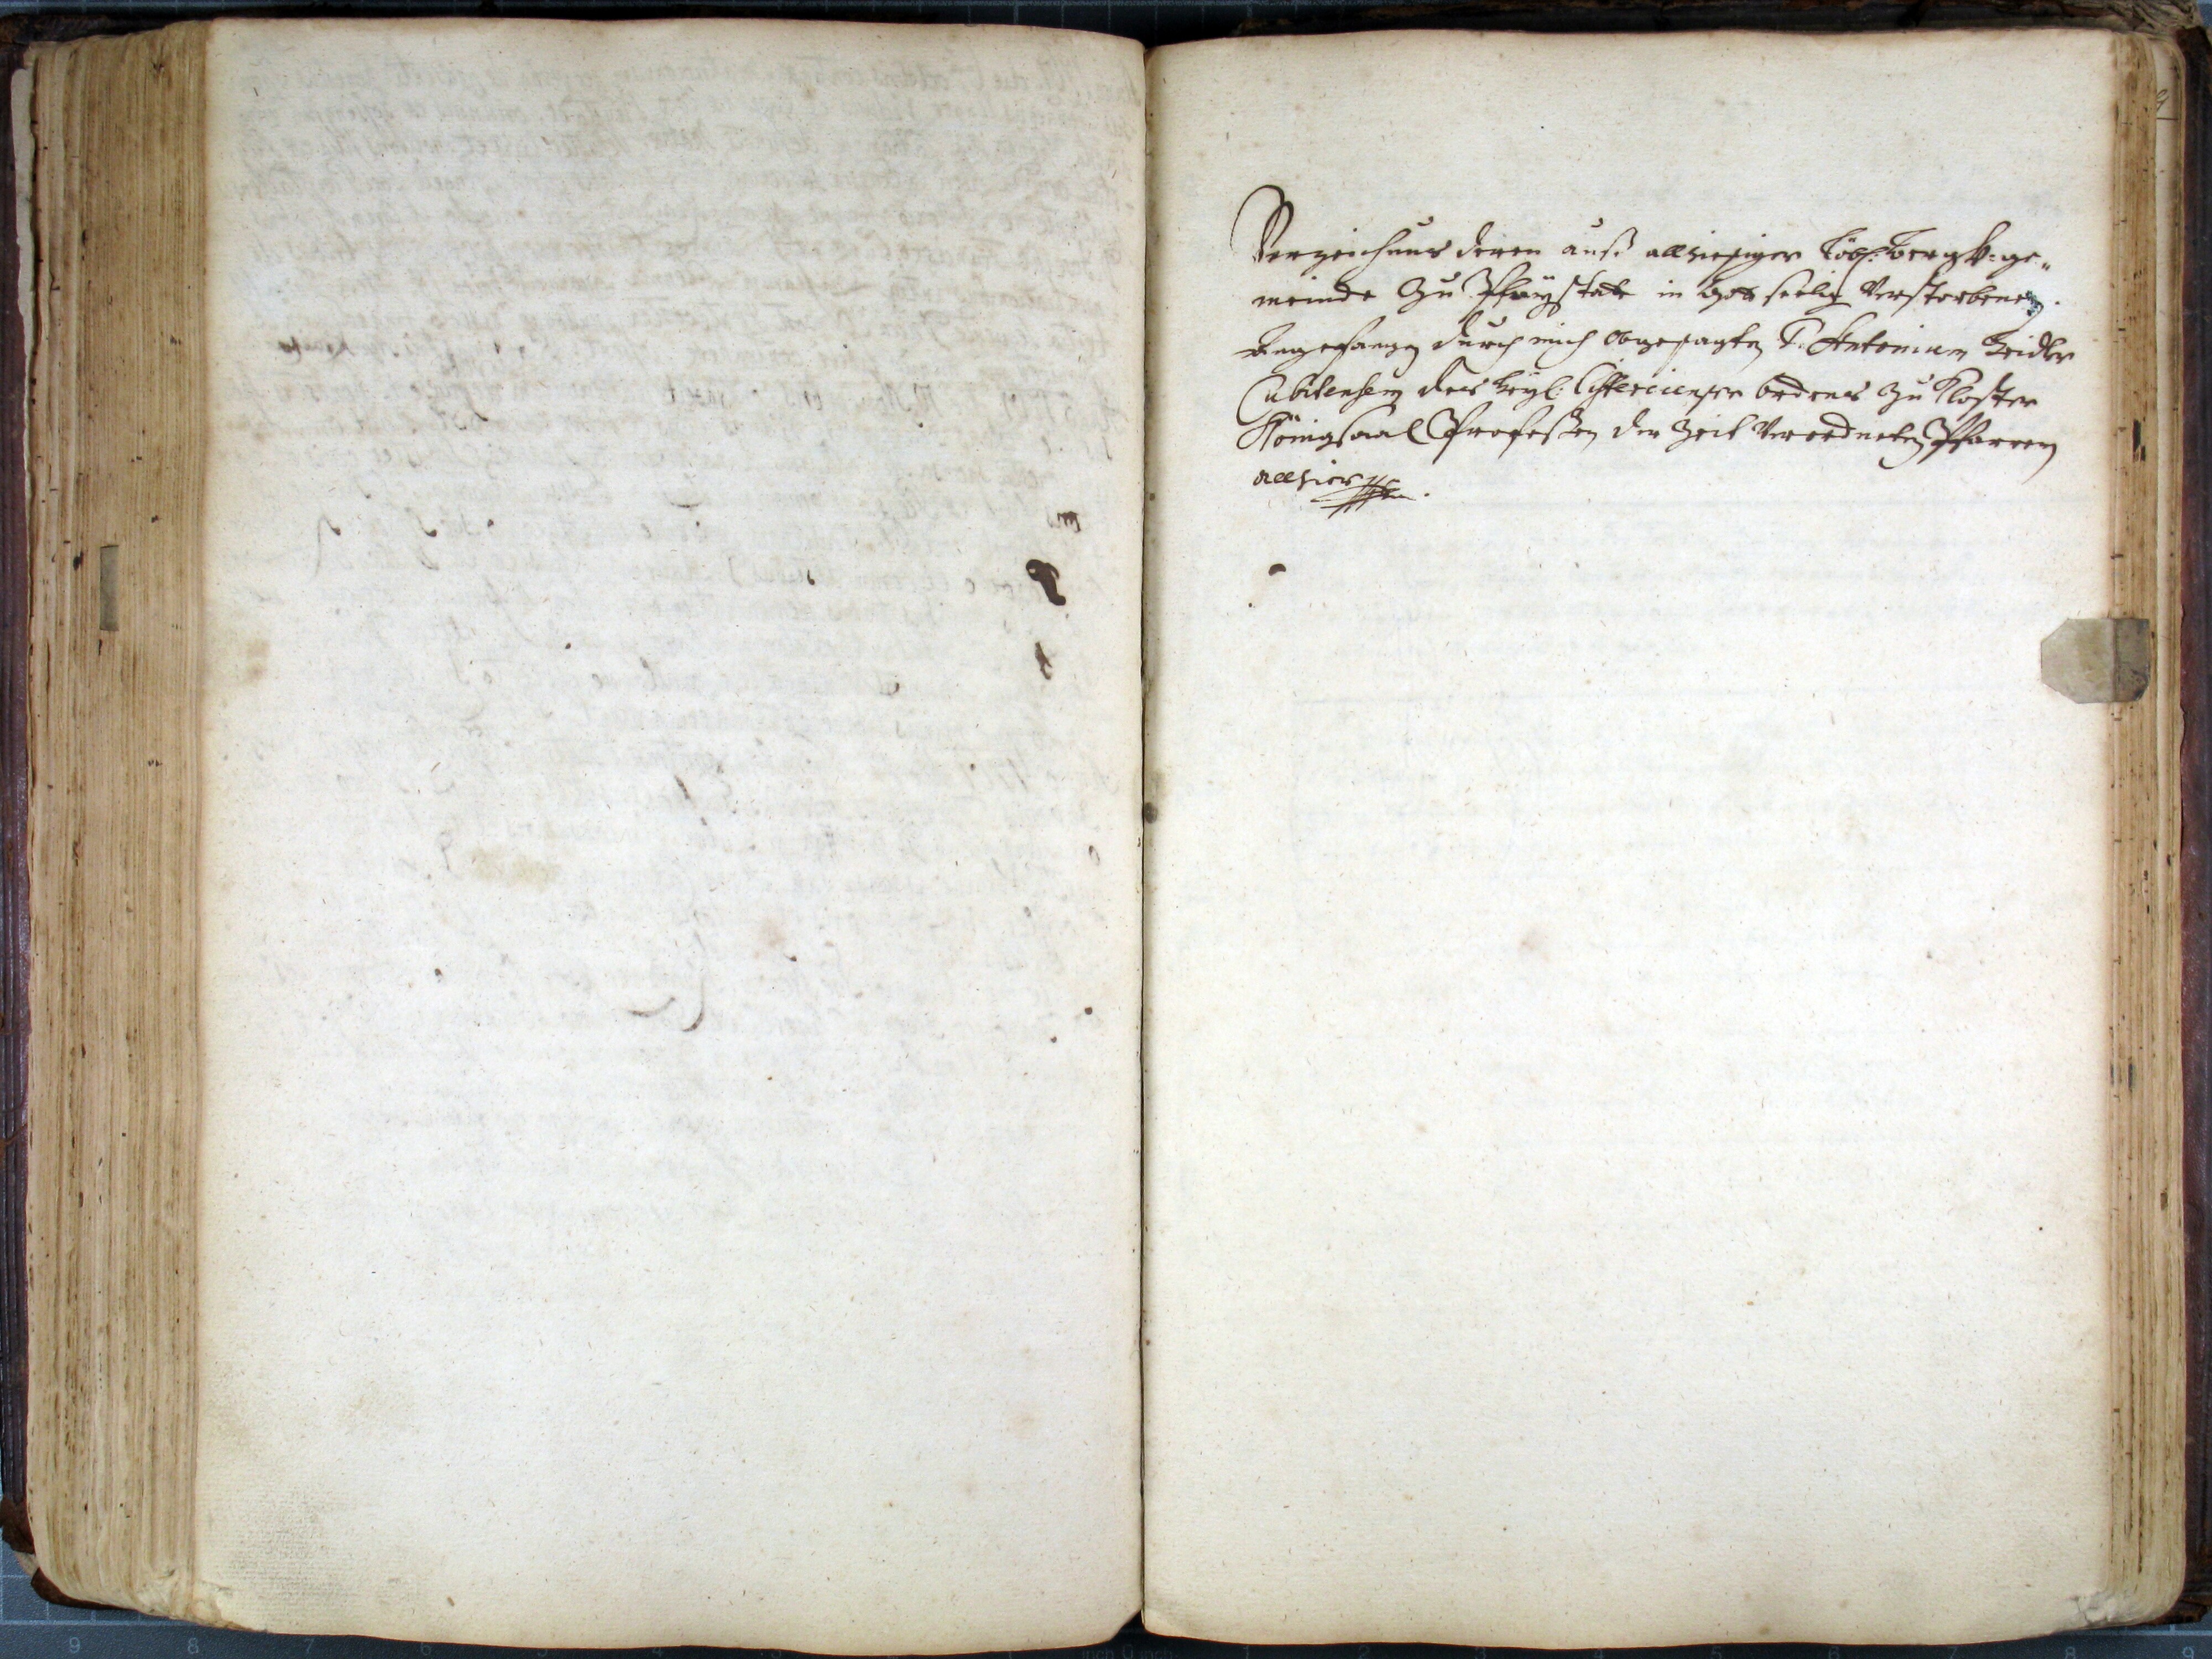 Verzeichnus deren auß alhiesiger Löbl: Bergk-ge„
meinde Zu Pfaystatt in Gott seelig Verstorbenen.
Angefangen durch mich obgesagten F. Antonium Zeidler
Cubitensem des heyl: Cistercienser Ordens zu Kloster
Königsaal Professen der Zeit Verordneten Pfarren
allhier